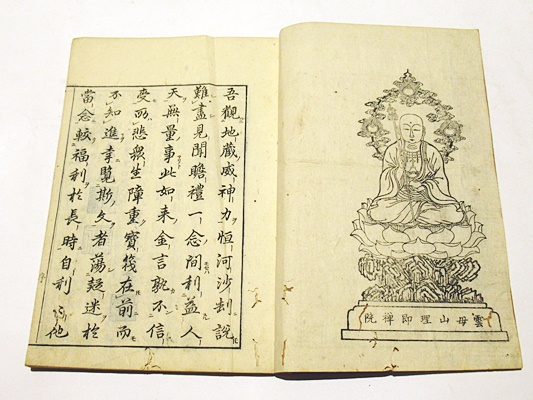 雲母山理即禪院
吾觀地藏威神力恒河沙劫說
難盡見聞瞻禮一念間利益人
天無量事此如来金言孰不信
受所悲衆生障重寶筏在前而
不知進幸覽斯文者蕩疑迷於
當念較福利於長時自利他